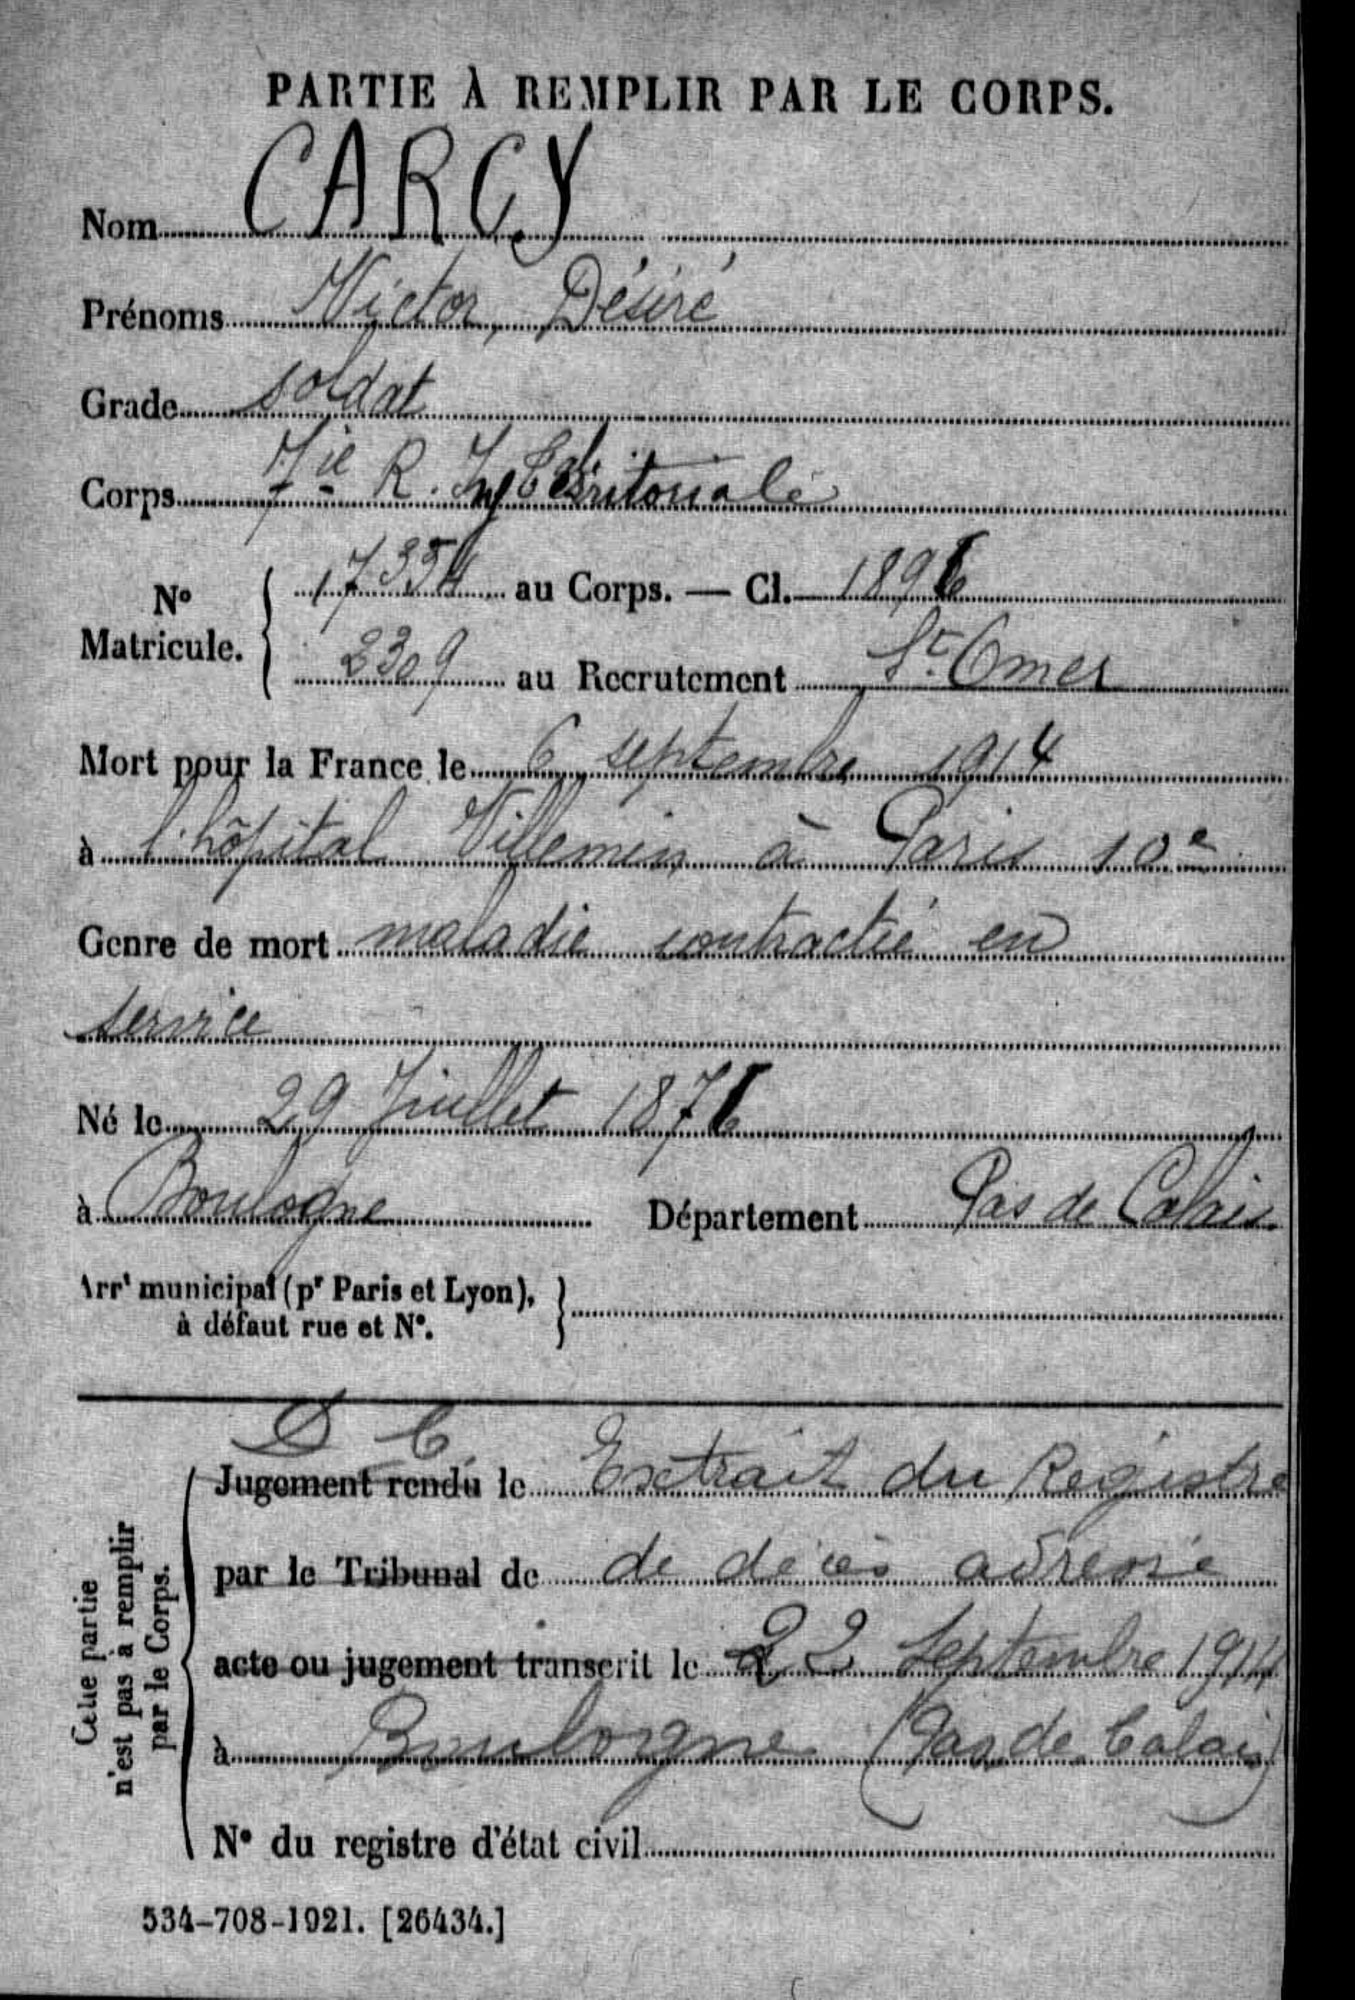 PARTIE À REMPLIR PAR LE CORPS.
Nom CARCY
Prénoms Victor, Désiré
Grade soldat
Corps 7ie R. Inf Territoriale
No Matricule. 17354 au Corps. — Cl. 1896
2309 au Recrutement St. Omer
Mort pour la France le 6 septembre 1914
à l'hôpital Villemin à Paris 10e
Genre de mort maladie contractée en
service
Né le 29 Juillet 1876
à Boulogne Département Pas de Calais
Arrt municipal (pr Paris et Lyon),
à défaut rue et No.
D C.
Jugement rendu le Extrait du Registre
par le Tribunal de de décès adressé
acte ou jugement transcrit le 22 Septembre 1914
à Boulogne (Pas de Calais)
No du registre d'état civil
Cette partie
n'est pas à remplir
par le Corps.
534-708-1921. [26434.]